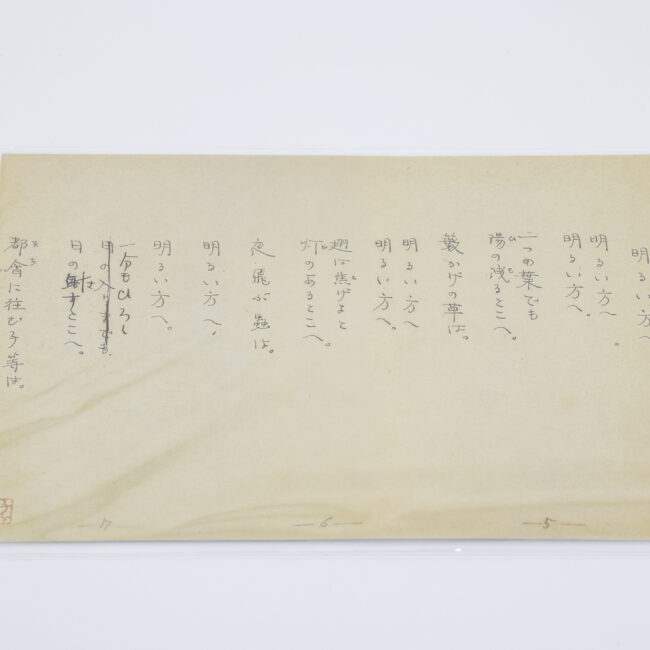 明るい方へ
明るい方へ。
明るい方へ。
一つの葉でも
陽の洩るとこへ。
籔かげの草は。
明るい方へ
明るい方へ。
翅は焦げよと
灯のあるとこへ。
夜飛ぶ蟲は。
明るい方へ
明るい方へ。
一分もひろく
日の射すとこへ。
都會に住む子等は。
—5—
—6—
—7